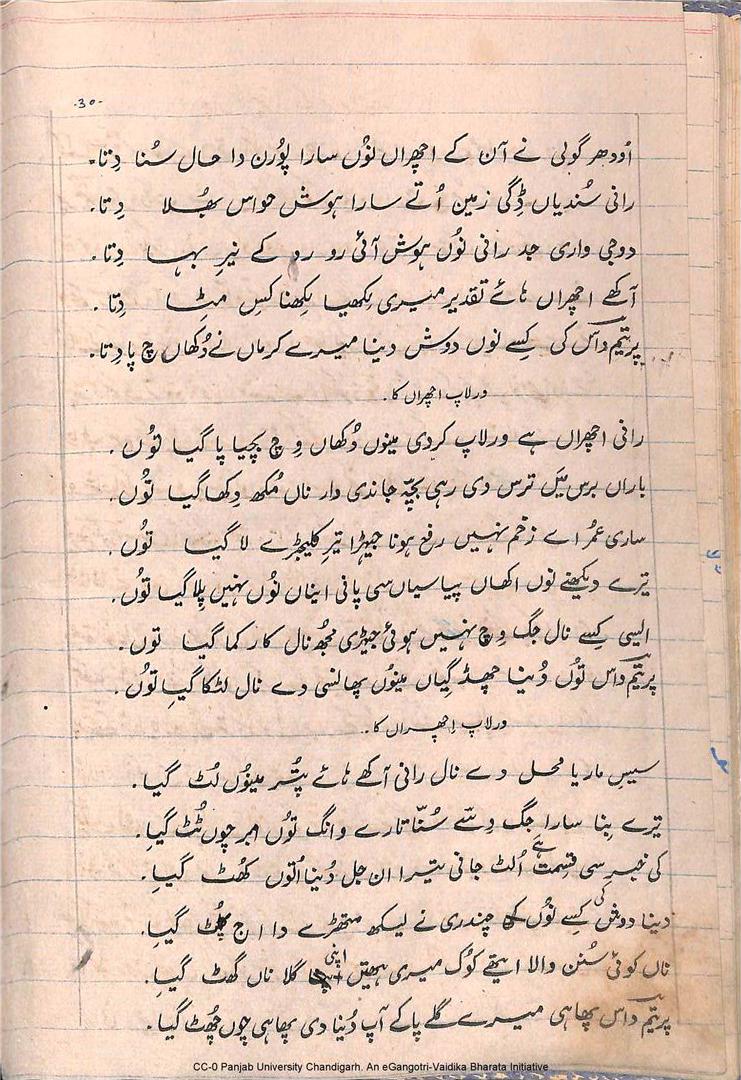 -30-
اُودھر گولی نے آن کے اچھراں نوُں سارا پوُرن دا حال سُنا دِتا۔
رانی سُندیاں ڈِگی زمین اُتے سارا ہوش حواس بھُلا دِتا۔
دوجی واری جد رانی نوُں ہوش آئی رو رو کے نیر بہا دِتا۔
آکھے اچھراں ہائے تقدیر میری لِکھیا لِکھنا کِس مِٹا دِتا۔
پریتم داس کی کِسے نوں دوش دینا میرے کرماں نے دُکھاں چ پا دِتا۔
ورلاپ اچھراں کا۔
رانی اچھراں ہے ورلاپ کردی مینوں دُکھاں وچ بچیا پا گیا توُں۔
باراں برس میَں ترس دی رہی بچّہ جاندی وار ناں مُکھ وِکھا گیا توُں۔
ساری عمُر اے زخم نہیں رفع ہونا جیہڑا تیر کلیجڑے لا گیا توُں۔
تیرے دیکھنے نوں اکھاں پیاسیاں سی پانی ایناں نوُں نہیں پِلا گیا توُں۔
ایسی کِسے نال جگ وچ نہیں ہوئی جیہڑی مجُھ نال کار کما گیا توں۔
پریتم داس توُں دُنیا چھڈ گیاں مینوُں پھانسی دے نال لٹکا گیا توُں۔
ورلاپ اِچھراں کا۔
سیس ماریا محل دے نال رانی آکھے ہائے پُتر مینوُں لُٹ گیا۔
تیرے بِنا سارا جگ دِسّے سُنّا تارے وانگ توُں امبر چوں ٹُٹ گیا۔
کی خبر سی قسِمت ہے اُلٹ جانی تیرا ان جل دُنیا اُتوں کھُٹ گیا۔
دینا دوش کی کِسے نوُں چندری نے لیکھ متھڑے دا اج پھُٹ گیا۔
ناں کوئی سُنن والا ایتھے کوُک میری ہتھیں اپنی گلا ناں گھٹ گیا۔
پریتم داس پھاہی میرے گلے پا کے آپ دُنیا دی پھاہی چوں چھُٹ گیا۔
CC-0 Panjab University Chandigarh. An eGangotri-Vaidika Bharata Initiative